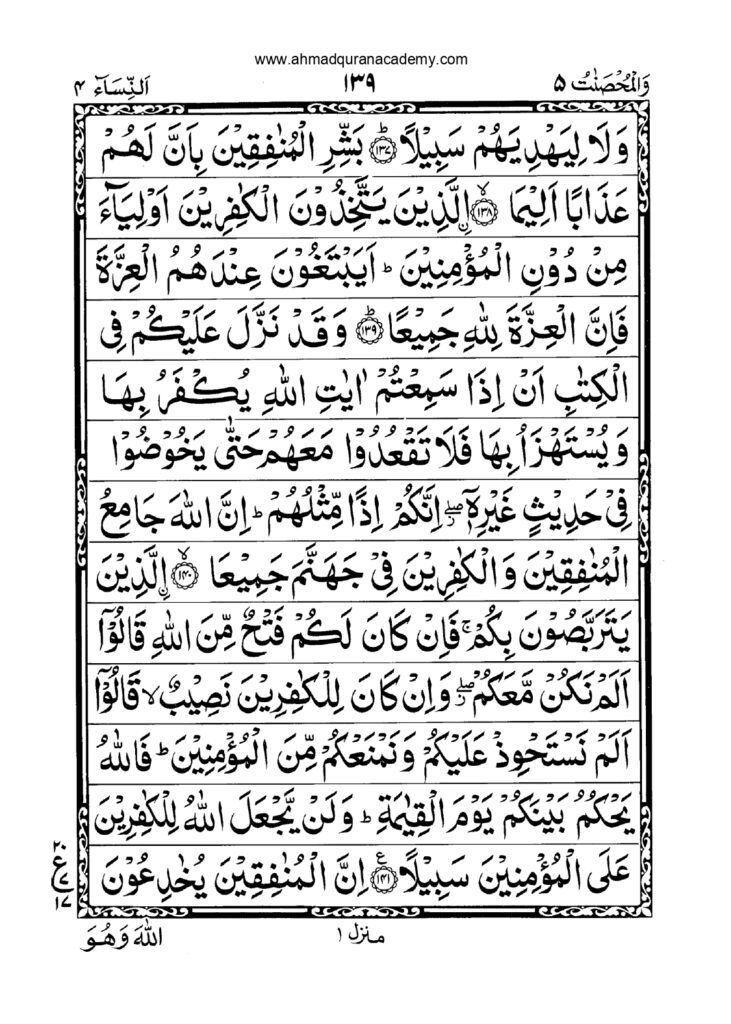 www.ahmadquranacademy.com
اَلنِّسَآء ۴ ۱۳۹ وَالْمُحْصَنٰتُ ۵
وَلَا لِيَهْدِيَهُمْ سَبِيْلًا ؕ﴿۱۳۷﴾ بَشِّرِ الْمُنٰفِقِيْنَ بِاَنَّ لَهُمْ
عَذَابًا اَلِيْمَا ۙ﴿۱۳۸﴾ اۨلَّذِيْنَ يَتَّخِذُوْنَ الْكٰفِرِيْنَ اَوْلِيَآءَ
مِنْ دُوْنِ الْمُؤْمِنِيْنَ ؕ اَيَبْتَغُوْنَ عِنْدَهُمُ الْعِزَّةَ
فَاِنَّ الْعِزَّةَ لِلّٰهِ جَمِيْعًا ؕ﴿۱۳۹﴾ وَقَدْ نَزَّلَ عَلَيْكُمْ فِى
الْكِتٰبِ اَنْ اِذَا سَمِعْتُمْ اٰيٰتِ اللّٰهِ يُكْفَرُ بِهَا
وَيُسْتَهْزَاُ بِهَا فَلَا تَقْعُدُوْا مَعَهُمْ حَتّٰى يَخُوْضُوْا
فِىْ حَدِيْثٍ غَيْرِهٖۤ ۖ اِنَّكُمْ اِذًا مِّثْلُهُمْ ؕ اِنَّ اللّٰهَ جَامِعُ
الْمُنٰفِقِيْنَ وَالْكٰفِرِيْنَ فِىْ جَهَنَّمَ جَمِيْعَا ۙ﴿۱۴۰﴾ اۨلَّذِيْنَ
يَتَرَبَّصُوْنَ بِكُمْ ۚ فَاِنْ كَانَ لَكُمْ فَتْحٌ مِّنَ اللّٰهِ قَالُوْۤا
اَلَمْ نَكُنْ مَّعَكُمْ ۖ وَاِنْ كَانَ لِلْكٰفِرِيْنَ نَصِيْبٌ ۙ قَالُوْۤا
اَلَمْ نَسْتَحْوِذْ عَلَيْكُمْ وَنَمْنَعْكُمْ مِّنَ الْمُؤْمِنِيْنَ ؕ فَاللّٰهُ
يَحْكُمُ بَيْنَكُمْ يَوْمَ الْقِيٰمَةِ ؕ وَلَنْ يَّجْعَلَ اللّٰهُ لِلْكٰفِرِيْنَ
عَلَى الْمُؤْمِنِيْنَ سَبِيْلًا ﴿۱۴۱﴾ع اِنَّ الْمُنٰفِقِيْنَ يُخٰدِعُوْنَ
۲۰
ع ۷
۱۷
اللّٰهَ وَهُوَ منزل ۱